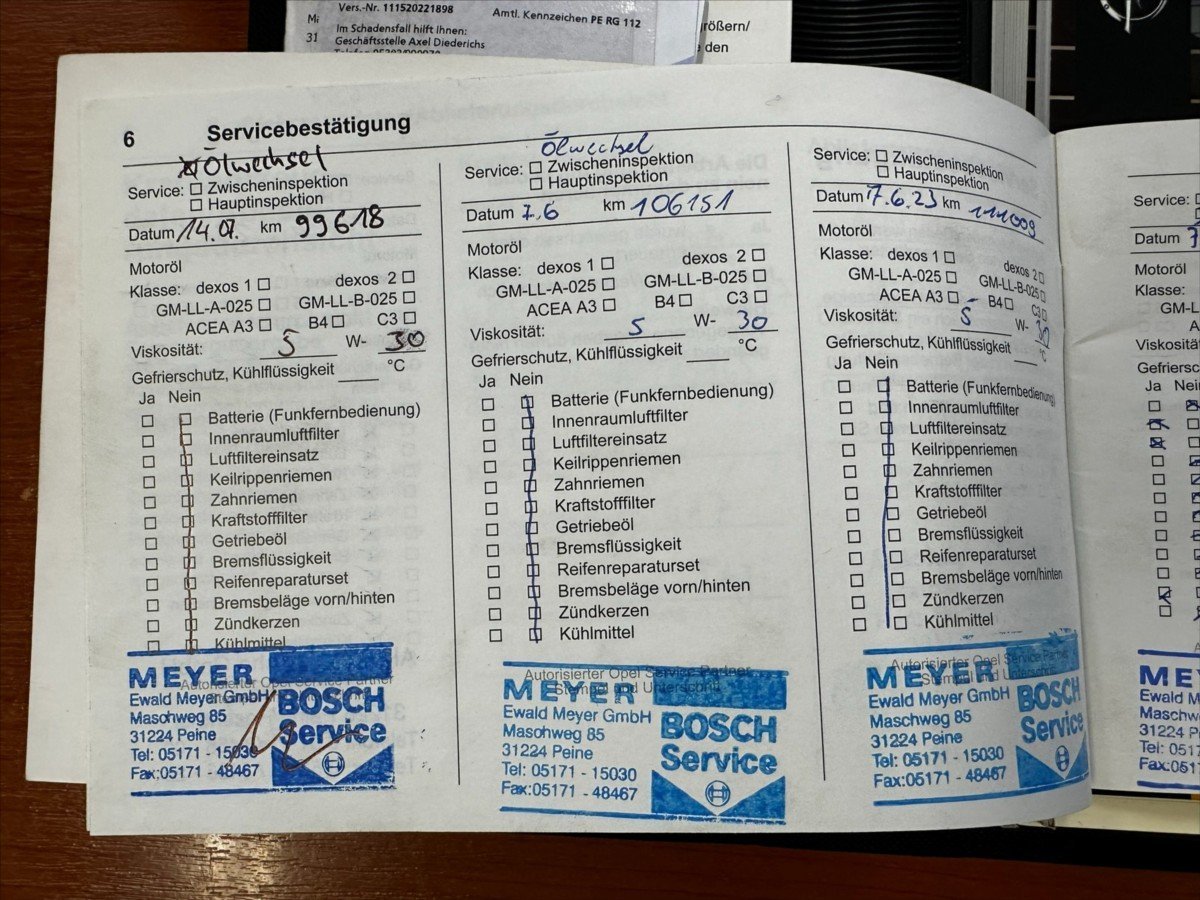 Vers.-Nr. 111520221898
Amtl. Kennzeichen PE RG 112
Im Schadensfall hilft Ihnen:
31 Geschäftsstelle Axel Diederichs
größern/
den
6 Servicebestätigung
Ölwechsel
Service: Zwischeninspektion
Hauptinspektion
Datum 14.07. km 99618
Motoröl
Klasse: dexos 1 dexos 2
GM-LL-A-025 GM-LL-B-025
ACEA A3 B4 C3
Viskosität: 5 W- 30
Gefrierschutz, Kühlflüssigkeit °C
Ja Nein
Batterie (Funkfernbedienung)
Innenraumluftfilter
Luftfiltereinsatz
Keilrippenriemen
Zahnriemen
Kraftstofffilter
Getriebeöl
Bremsflüssigkeit
Reifenreparaturset
Bremsbeläge vorn/hinten
Zündkerzen
Kühlmittel
Autorisierter Opel Service Partner
MEYER
Ewald Meyer GmbH
Maschweg 85
31224 Peine
Tel: 05171 - 15030
Fax:05171 - 48467
BOSCH
Service
Ölwechsel
Service: Zwischeninspektion
Hauptinspektion
Datum 7.6 km 106151
Motoröl
Klasse: dexos 1 dexos 2
GM-LL-A-025 GM-LL-B-025
ACEA A3 B4 C3
Viskosität: 5 W- 30
Gefrierschutz, Kühlflüssigkeit °C
Ja Nein
Batterie (Funkfernbedienung)
Innenraumluftfilter
Luftfiltereinsatz
Keilrippenriemen
Zahnriemen
Kraftstofffilter
Getriebeöl
Bremsflüssigkeit
Reifenreparaturset
Bremsbeläge vorn/hinten
Zündkerzen
Kühlmittel
Autorisierter Opel Service Partner
Stempel und Unterschrift
MEYER
Ewald Meyer GmbH
Maschweg 85
31224 Peine
Tel: 05171 - 15030
Fax:05171 - 48467
BOSCH
Service
Service: Zwischeninspektion
Hauptinspektion
Datum 7.6.23 km 111009
Motoröl
Klasse: dexos 1 dexos 2
GM-LL-A-025 GM-LL-B-025
ACEA A3 B4 C3
Viskosität: 5 W- 30
Gefrierschutz, Kühlflüssigkeit °C
Ja Nein
Batterie (Funkfernbedienung)
Innenraumluftfilter
Luftfiltereinsatz
Keilrippenriemen
Zahnriemen
Kraftstofffilter
Getriebeöl
Bremsflüssigkeit
Reifenreparaturset
Bremsbeläge vorn/hinten
Zündkerzen
Kühlmittel
Autorisierter Opel Service Partner
Stempel und Unterschrift
MEYER
Ewald Meyer GmbH
Maschweg 85
31224 Peine
Tel: 05171 - 15030
Fax:05171 - 48467
BOSCH
Service
Service:
Datum 7
Motoröl
Klasse:
GM-L
A
Viskosität
Gefriersc
Ja Nein
ME
Ewald M
Maschw
31224 P
Tel: 051
Fax:051